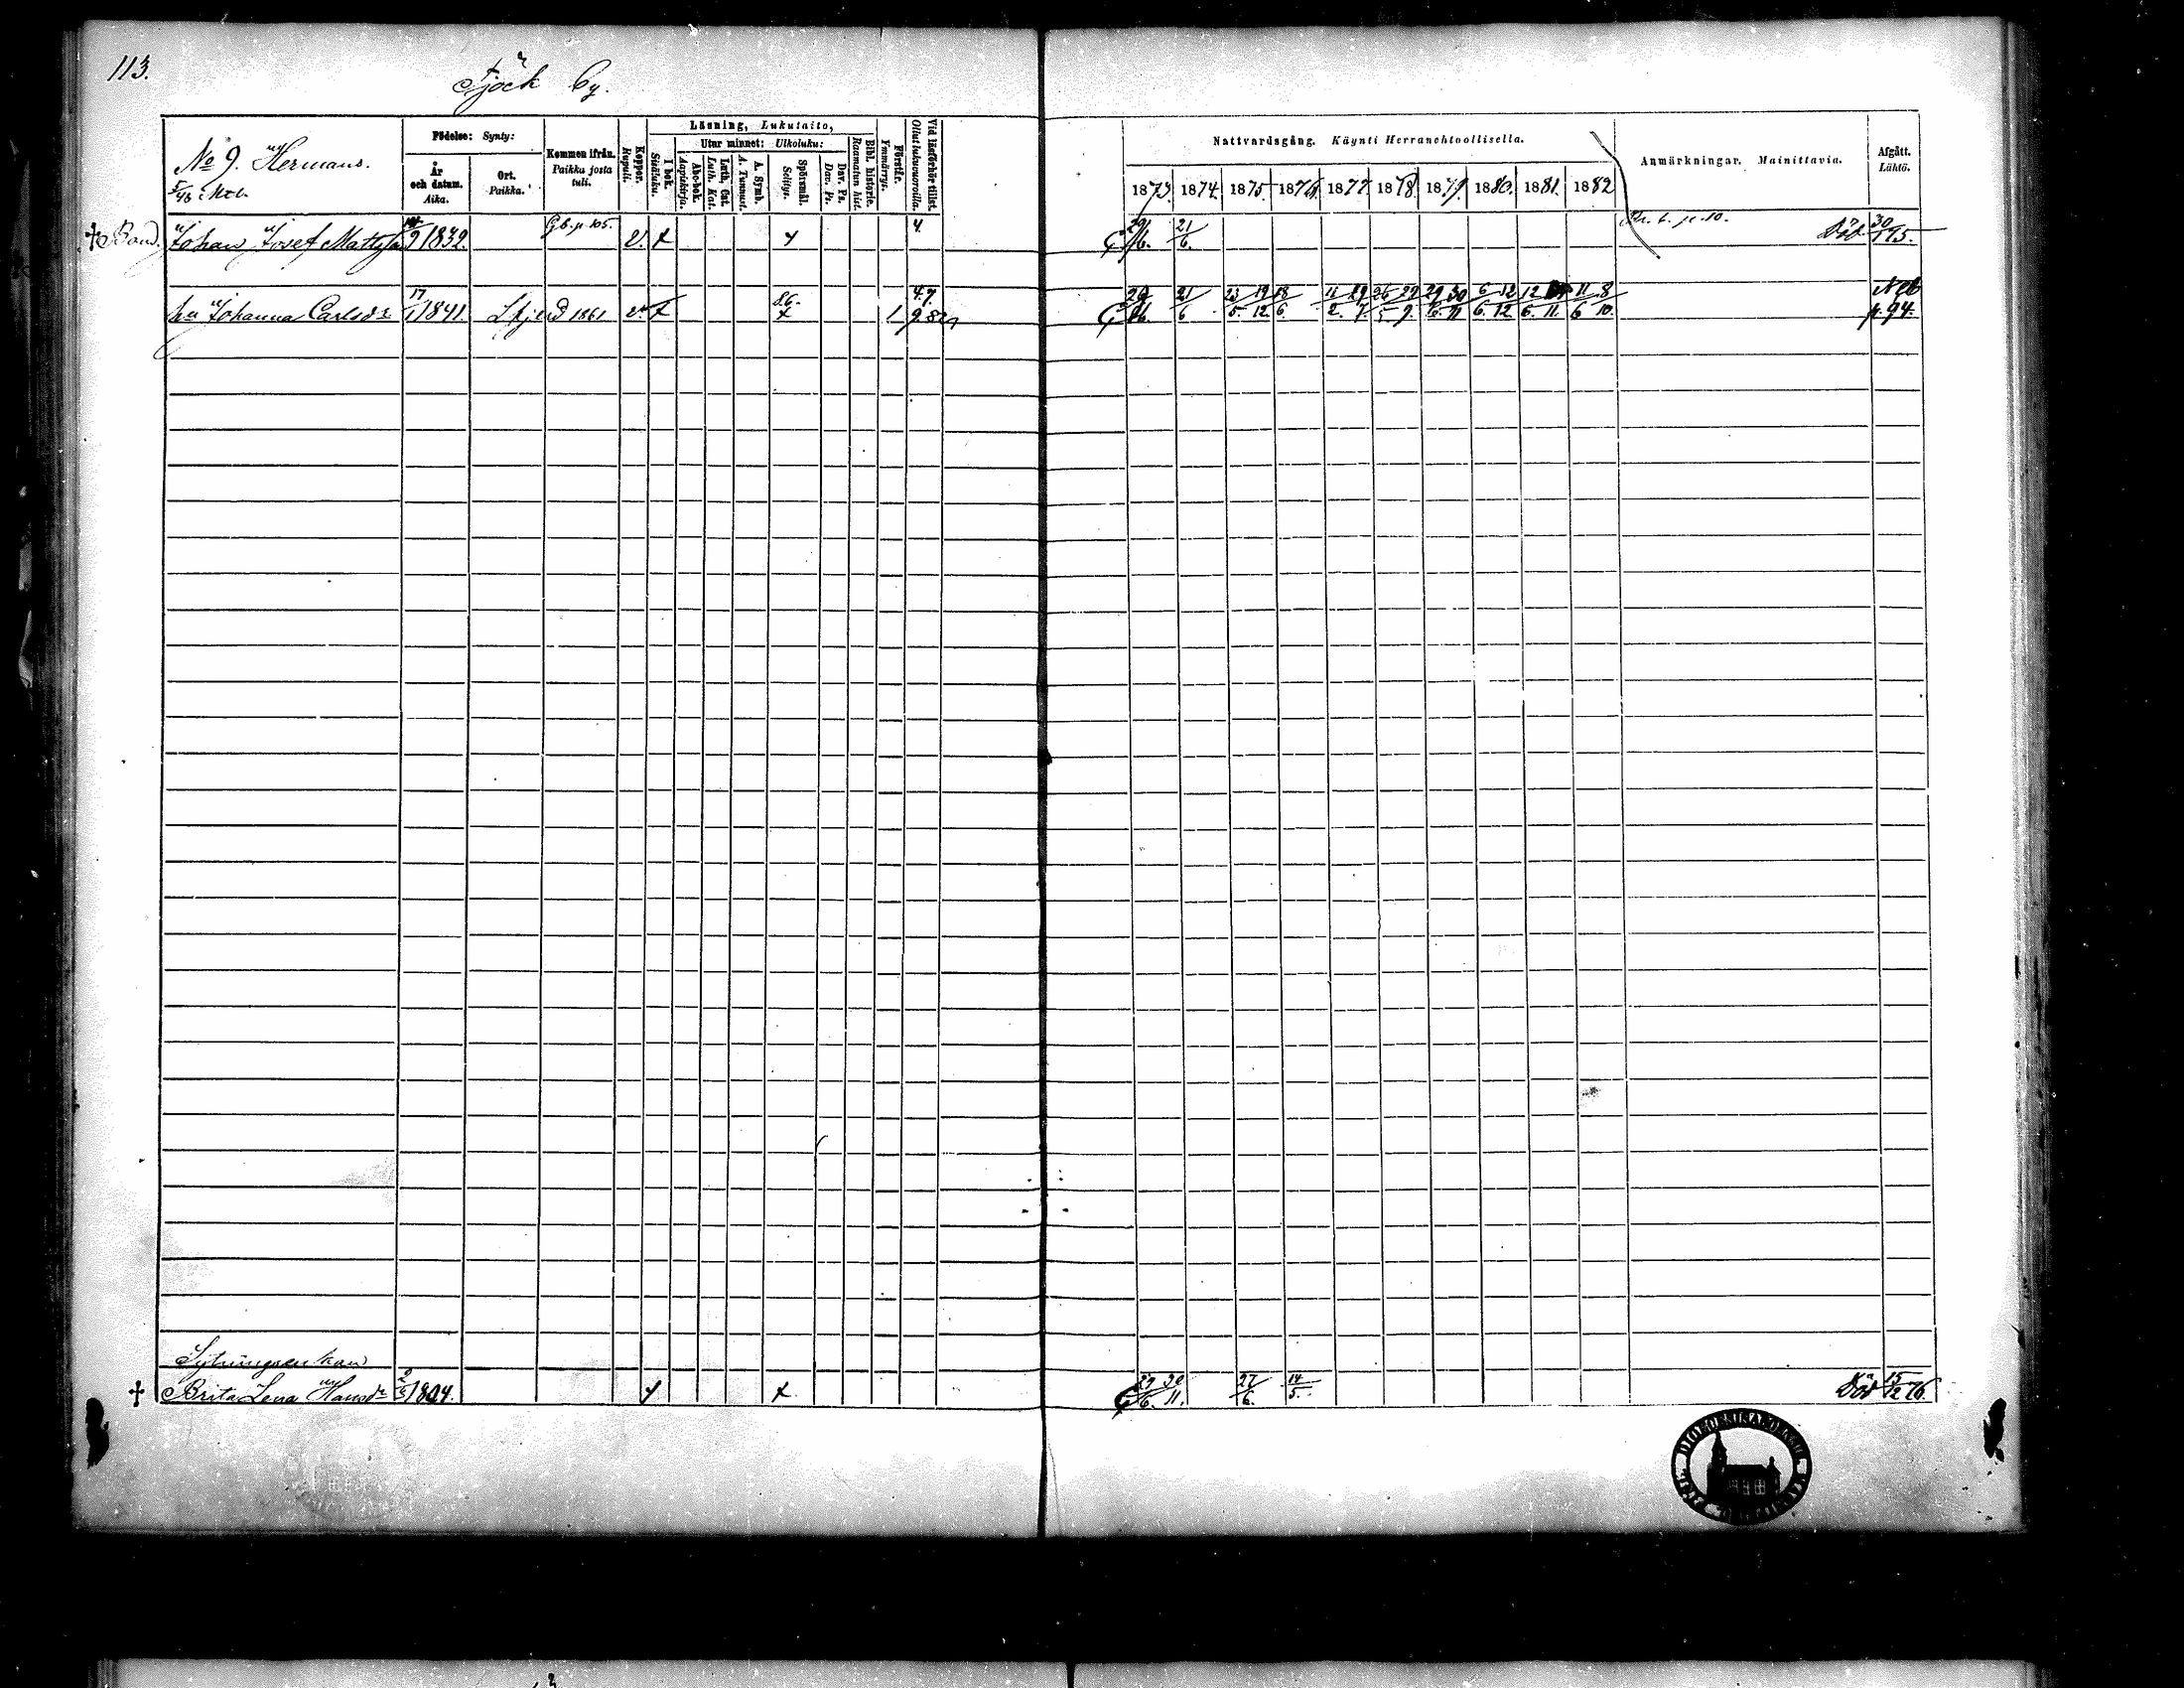 113.
Tjöck by.
No 9. Hermans.
5/48 Mtl.
Födelse: Synty:
År och datum. Aika.
Ort. Paikka.
Kommen ifrån. Paikka josta tuli.
Koppor. Rupuli.
Läsning, Lukutaito,
I bok. Sisäluku.
Utur minnet: Ulkoluku:
Abc-bok. Aapiskirja.
Luth. Cat. Luth. Kat.
A. Symb. A. Tunnust.
Spörsmål. Selitys.
Dav. Ps. Dav. Ps.
Bibl. historie. Raamatun hist.
Förstår. Ymmärrys.
Vid läsförhör tillst. Ollut lukuvuoroilla.
Nattvardsgång. Käynti Herranehtoollisella.
1873. 1874. 1875. 1876. 1877. 1878. 1879. 1880. 1881. 1882
Anmärkningar. Mainittavia.
Afgått. Lähtö.
† Bond. Johan Josef Mattsson 1832. G.b. p. 105. v. x x 4. 21/6. p. 10. Död 30/1 75.
hu Johanna Carlsdr 17/1 1841. 1861 v. x 86. x 1 4.7. 9 82 21/6 23/5. 19/12 18/6. 11/2. 29/7. 26/5 29/9. 29/6. 30/11 6/6. 12/12. 12/6. 11. 11/6 8/10. Ngb p. 94.
Sytningsenkan
† Brita Lena Hansdr 1804. x x 29/6. 30/11. 27/6. 14/5. Död 15/12 76.